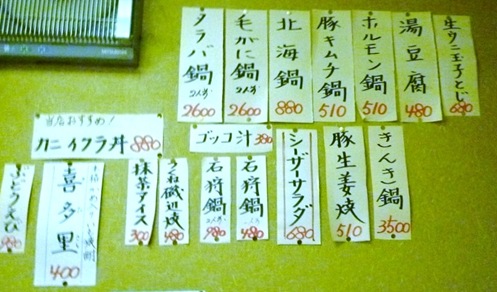 生ウニ玉子とじ
680
湯豆腐
480
ホルモン鍋
510
豚キムチ鍋
510
北海鍋
880
毛がに鍋
2人分
2600
タラバ鍋
2人分
2600
きんき鍋
3500
豚生姜焼
510
シーザーサラダ
680
ゴッコ汁 380
石狩鍋
480
石狩鍋
2人分
980
つくね磯辺焼
480
抹茶アイス
300
当店おすすめ!
カニイクラ丼 880
喜多里
400
ぶどうえび